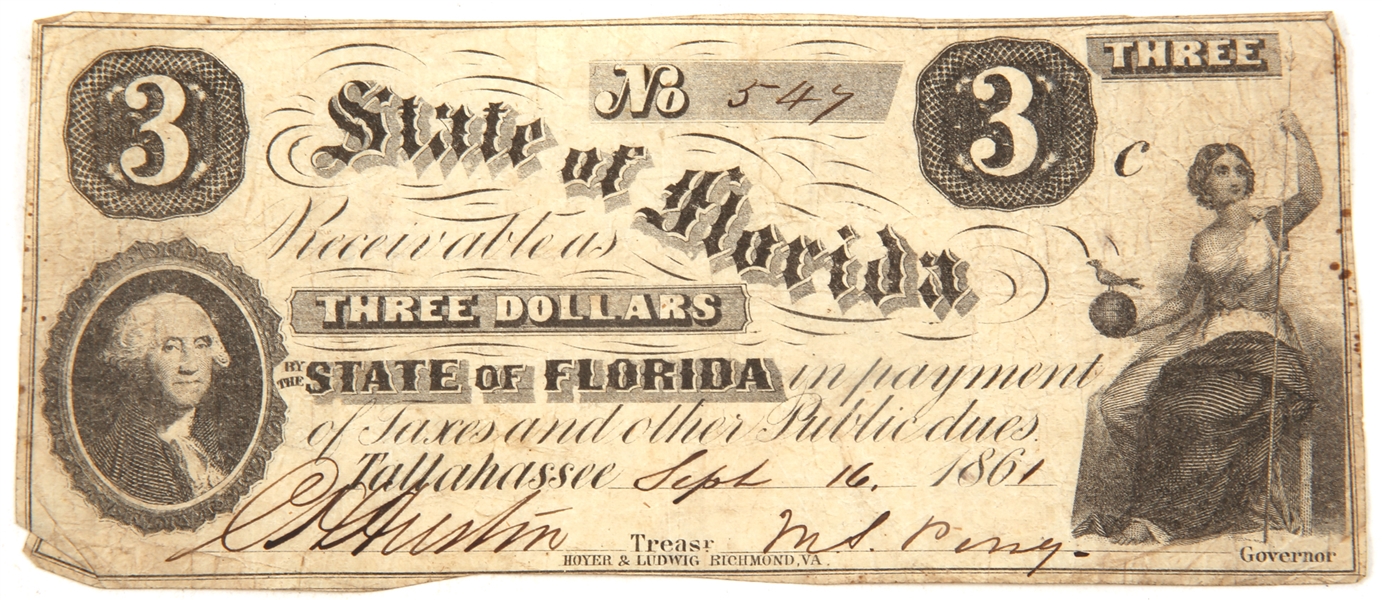 3 No 547 3 THREE
State of Florida
C
Receivable as
THREE DOLLARS
BY THE STATE OF FLORIDA in payment
of Taxes and other Public dues.
Tallahassee Sept 16. 1861
C H Austin Treasr M. S. Perry. Governor
HOYER & LUDWIG RICHMOND, VA.